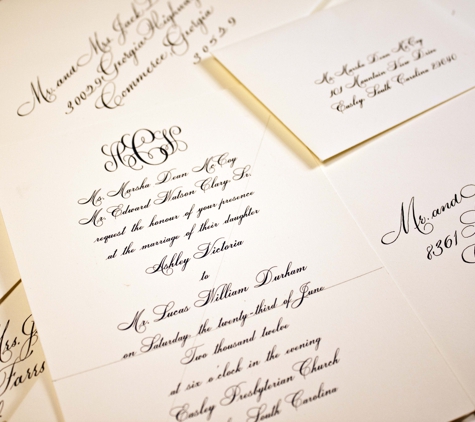 Mr. and Mrs. Jack
30029 Georgia Highway
Commerce, Georgia
30529
Ms. Marsha Dean McCoy
101 Mountain View Drive
Easley South Carolina 29640
Ms. Marsha Dean McCoy
Mr. Edward Watson Clary Sr.
request the honour of your presence
at the marriage of their daughter
Ashley Victoria
to
Mr. Lucas William Durham
on Saturday, the twenty-third of June
Two thousand twelve
at six o'clock in the evening
Easley Presbyterian Church
South Carolina
Mr. and
8361
Mrs. J
Farrs